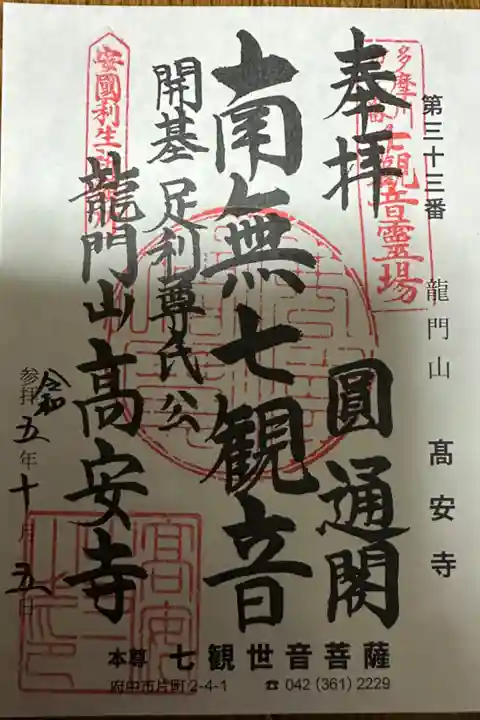 第三十三番 龍門山 髙安寺
多摩川
觀音靈場
奉拝 圓通閣
南無七観音
開基 足利尊氏公
安國利生
龍門山高安寺
参拝 令和五年十月五日
本尊 七観世音菩薩
府中市片町2-4-1 ☎ 042 (361) 2229